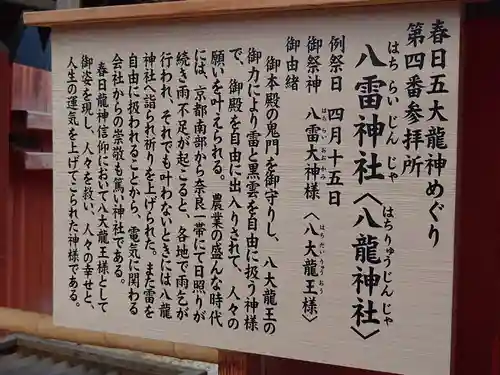 春日五大龍神めぐり
第四番参拝所
八雷神社〈八龍神社〉
はちらいじんじゃ　はちりゅうじんじゃ
例祭日　四月十五日
御祭神　八雷大神様〈八大龍王様〉
はちらいおおかみ　はちだいりゅうおう
御由緒
御本殿の鬼門を御守りし、八大龍王の
御力により雷と黒雲を自由に扱う神様
で、御殿を自由に出入りされて、人々の
願いを叶えられる。農業の盛んな時代
には、京都南部から奈良一帯にて日照りが
続き雨不足が起こると、各地で雨乞が
行われ、それでも叶わないときには八龍
神社へ詣られ祈りを上げられた。また雷を
自由に扱われることから、電気に関わる
会社からの崇敬も篤い神社である。
春日龍神信仰において八大龍王様として
御姿を現し、人々を救い、人々の幸せと、
人生の運気を上げてこられた神様である。